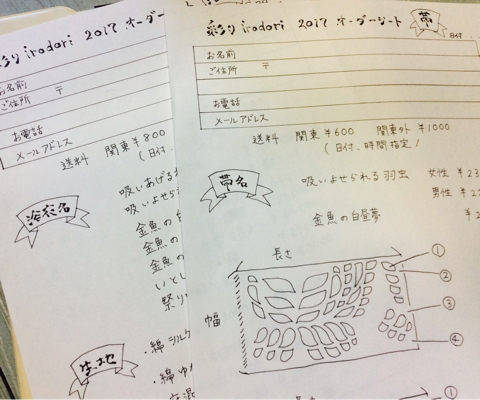 彩り irodori 2017 オーダー
お名前
ご住所 〒
お電話
メールアドレス
送料 関東 ¥800
(日付、
浴衣名
吸いあげる
吸いよせら
金魚の白
金魚の
金魚の
いとし
祭り
生地
・綿シルク
・綿ゆ
彩り irodori 2017 オーダーシート 帯 日付
お名前
ご住所 〒
お電話
メールアドレス
送料 関東 ¥600 関東外 ¥1000
(日付、時間指定/
帯名
吸いよせられる羽虫 女性 ¥23
男性 ¥2
金魚の白昼夢 ¥2
長さ
幅
①
②
③
④
①